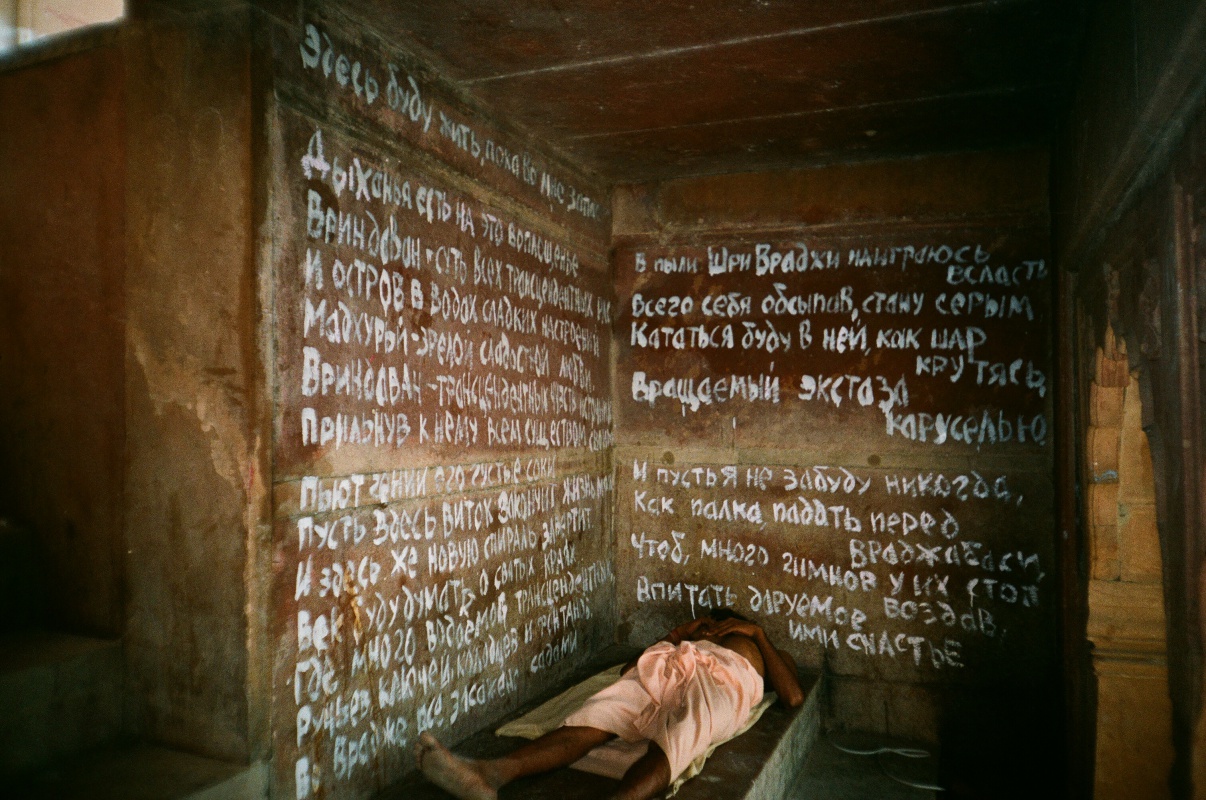 Здесь буду жить, пока во мне запас
Дыханья есть на это воплощенье
Вриндаван - суть всех трансцендентных рас
И остров в водах сладких настроений
Мадхурьи - зрелой сладостной любви.
Вриндаван - трансцендентных чувств
Прильнув к нему всем существом
Пьют гении его густые соки
Пусть здесь виток закончит жизнь моя
И здесь же новую спираль завертит.
Век буду думать о святых краях
Где много водоёмов трансцендентных
Ручьев ключей колодцев и
Во Врадже все засажено садами
В пыли Шри Враджи наиграюсь
всласть
Всего себя обсыпав, стану серым
Кататься буду в ней, как шар
крутясь,
Вращаемый экстаза
каруселью
И пусть я не забуду никогда,
Как палка, падать перед
Враджабаси,
Чтоб, много гимнов у их стоп
воздав,
Впитать даруемое
ими счастье